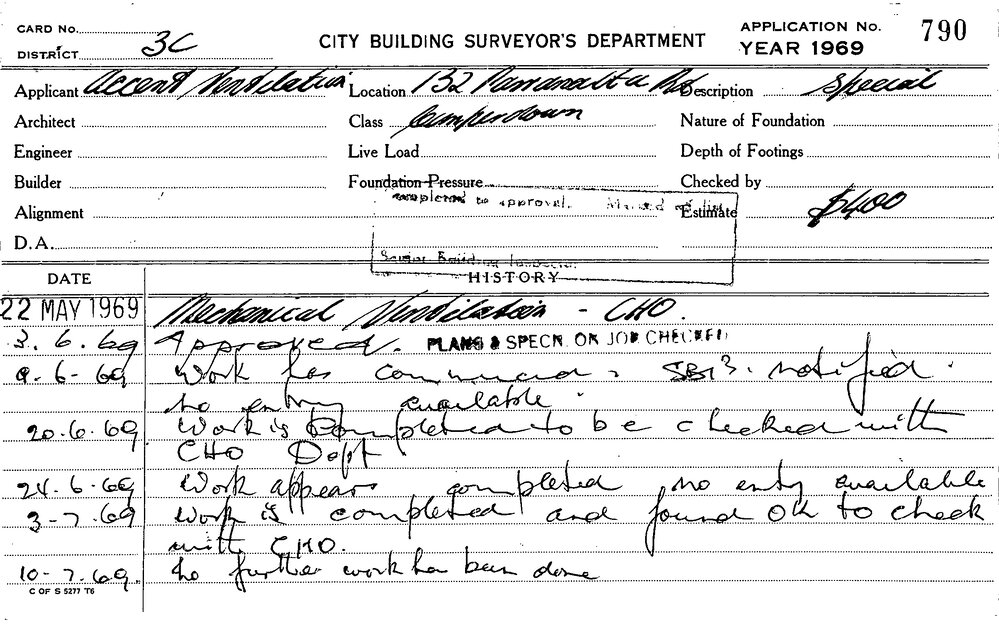 CARD No.
DISTRICT 3C
CITY BUILDING SURVEYOR'S DEPARTMENT
APPLICATION No. 790
YEAR 1969
Applicant Accent Ventilation Location 132 Parramatta Rd. Description Special
Architect Class Camperdown Nature of Foundation
Engineer Live Load Depth of Footings
Builder Foundation Pressure Checked by
completed to approval.
Alignment Estimate $400
D.A.
Senior Building Inspector
DATE HISTORY
22 MAY 1969 Mechanical Ventilation - CHO.
3.6.69 Approved. PLANS & SPECN. ON JOB CHECKED
9-6-69 Work has commenced, notified.
no entry available.
20.6.69 Work is completed to be checked with
CHO Dept
24.6.69 Work appears completed no entry available
3-7.69 Work is completed and found OK to check
with CHO.
10-7.69. No further work has been done
C OF S 5277 T6